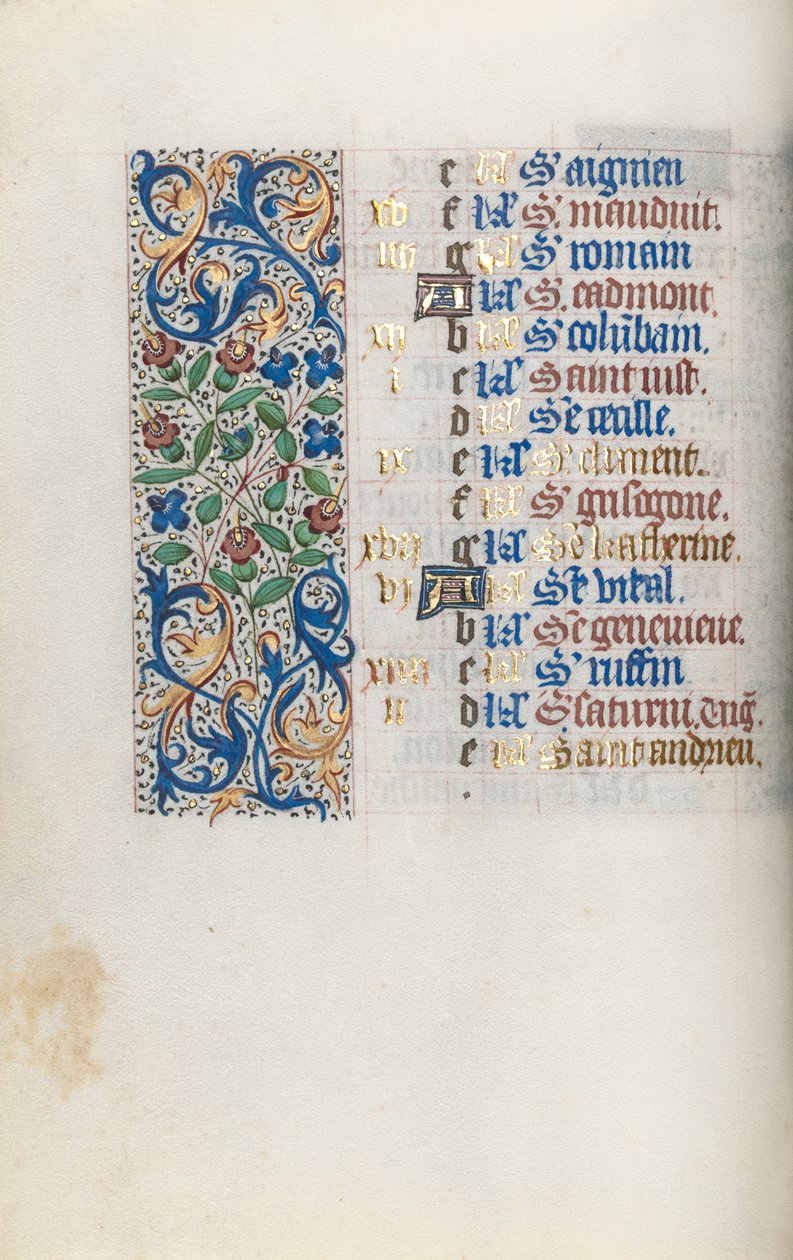 e kl S' aignien
xv f kl S. mauduit.
iiij g kl S' romain
A kl S. eadmont.
xij b kl S' colu̅bain.
i c kl Saint iust.
d kl Sͤ cecille.
ix e kl S' clement.
f kl S' grisogone.
xvij g kl Sͤ katherine.
vj A kl St vital.
b kl Sͤ geneuieue.
xiiii c kl S' ruffin
ii d kl S saturni. vig̅.
e kl Saint andrieu.